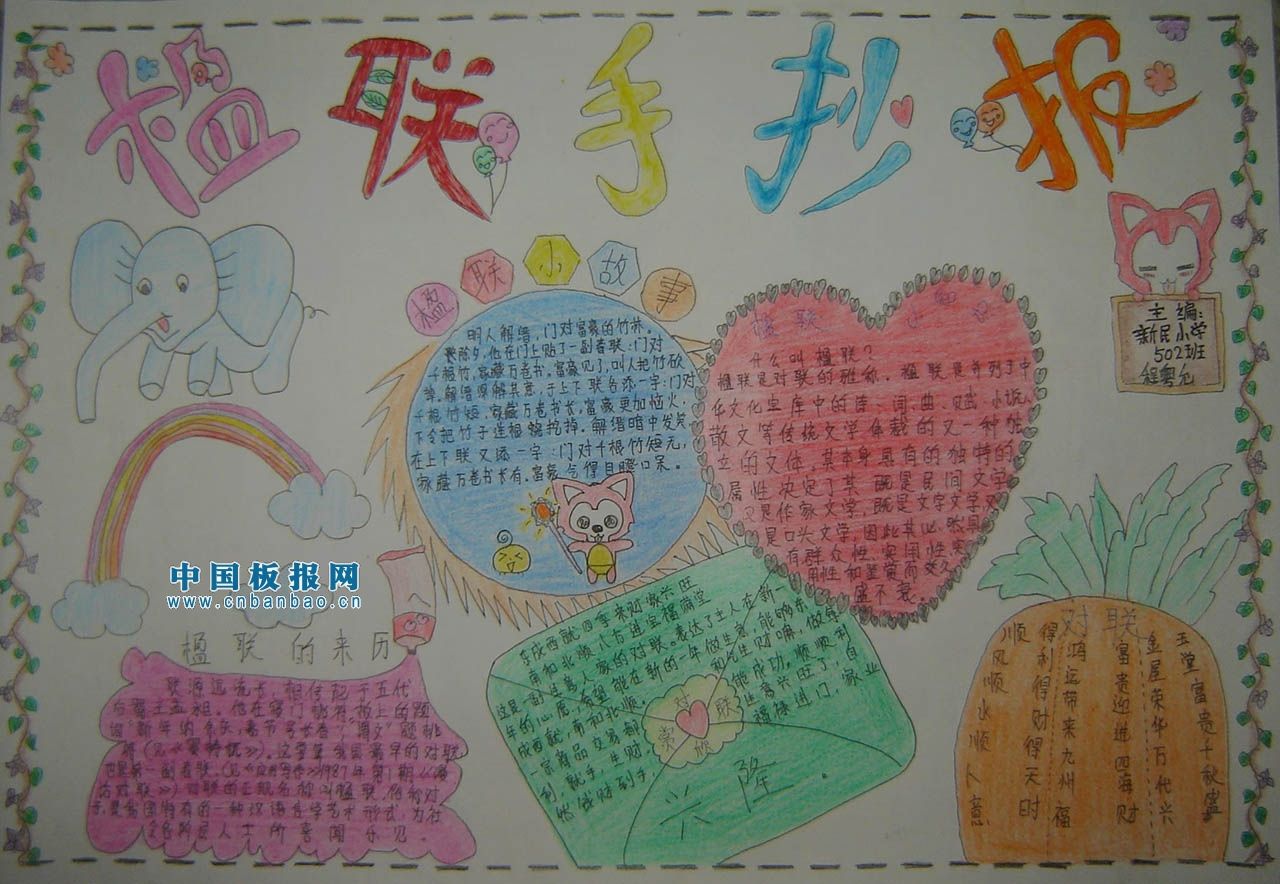 楹联手抄报
主编:
新民小学
502班
程粤仑
楹联小故事
明人解缙,门对富豪的竹林。
除夕,他在门上贴了一副春联:门对
千根竹,家藏万卷书。富豪见了,叫人把竹砍
掉。解缙深解其意,于上下联各添一字:门对
千根竹短,家藏万卷书长,富豪更加恼火,
下令把竹子连根挖掉。解缙暗中发笑
在上下联又添一字:门对千根竹短无,
家藏万卷书长有。富豪气得目瞪口呆。
楹联小知
什么叫楹联?
楹联是对联的雅称。楹联是并列于中
华文化宝库中的诗、词、曲、赋、小说、
散文等传统文学体裁的又一种独
立的文体,其本身具有的独特的
属性决定了其既是民间文学
又是作家文学,既是文字文学又
是口头文学,因此其必然具
有群众性、实用性
用性和鉴赏而经久
盛不衰。
中国板报网
www.cnbanbao.cn
楹联的来历
联源远流长,相传起于五代
后蜀主孟昶。他在寝门
谓“新年纳余庆,嘉节号长春”
这要算我国最早的对联,
也是第一副春联。
对联的正规名称叫楹联,俗称对
子,是我国特有的一种汉语言文学艺术形式,为社
会各阶层人士所喜闻乐见。
东成西就四季来财家兴旺
南和北顺八方进宝福满堂
这是一副过富人家的对联。表达了主人在新一
年的心愿,希望能在新的一年做生意,能够东
成西就,南和北顺
兴隆
对联
玉堂富贵千秋盛
金屋荣华万代兴
富贵迎进四海财
鸿运带来九州福
得利得财得天时
顺风顺水顺人意